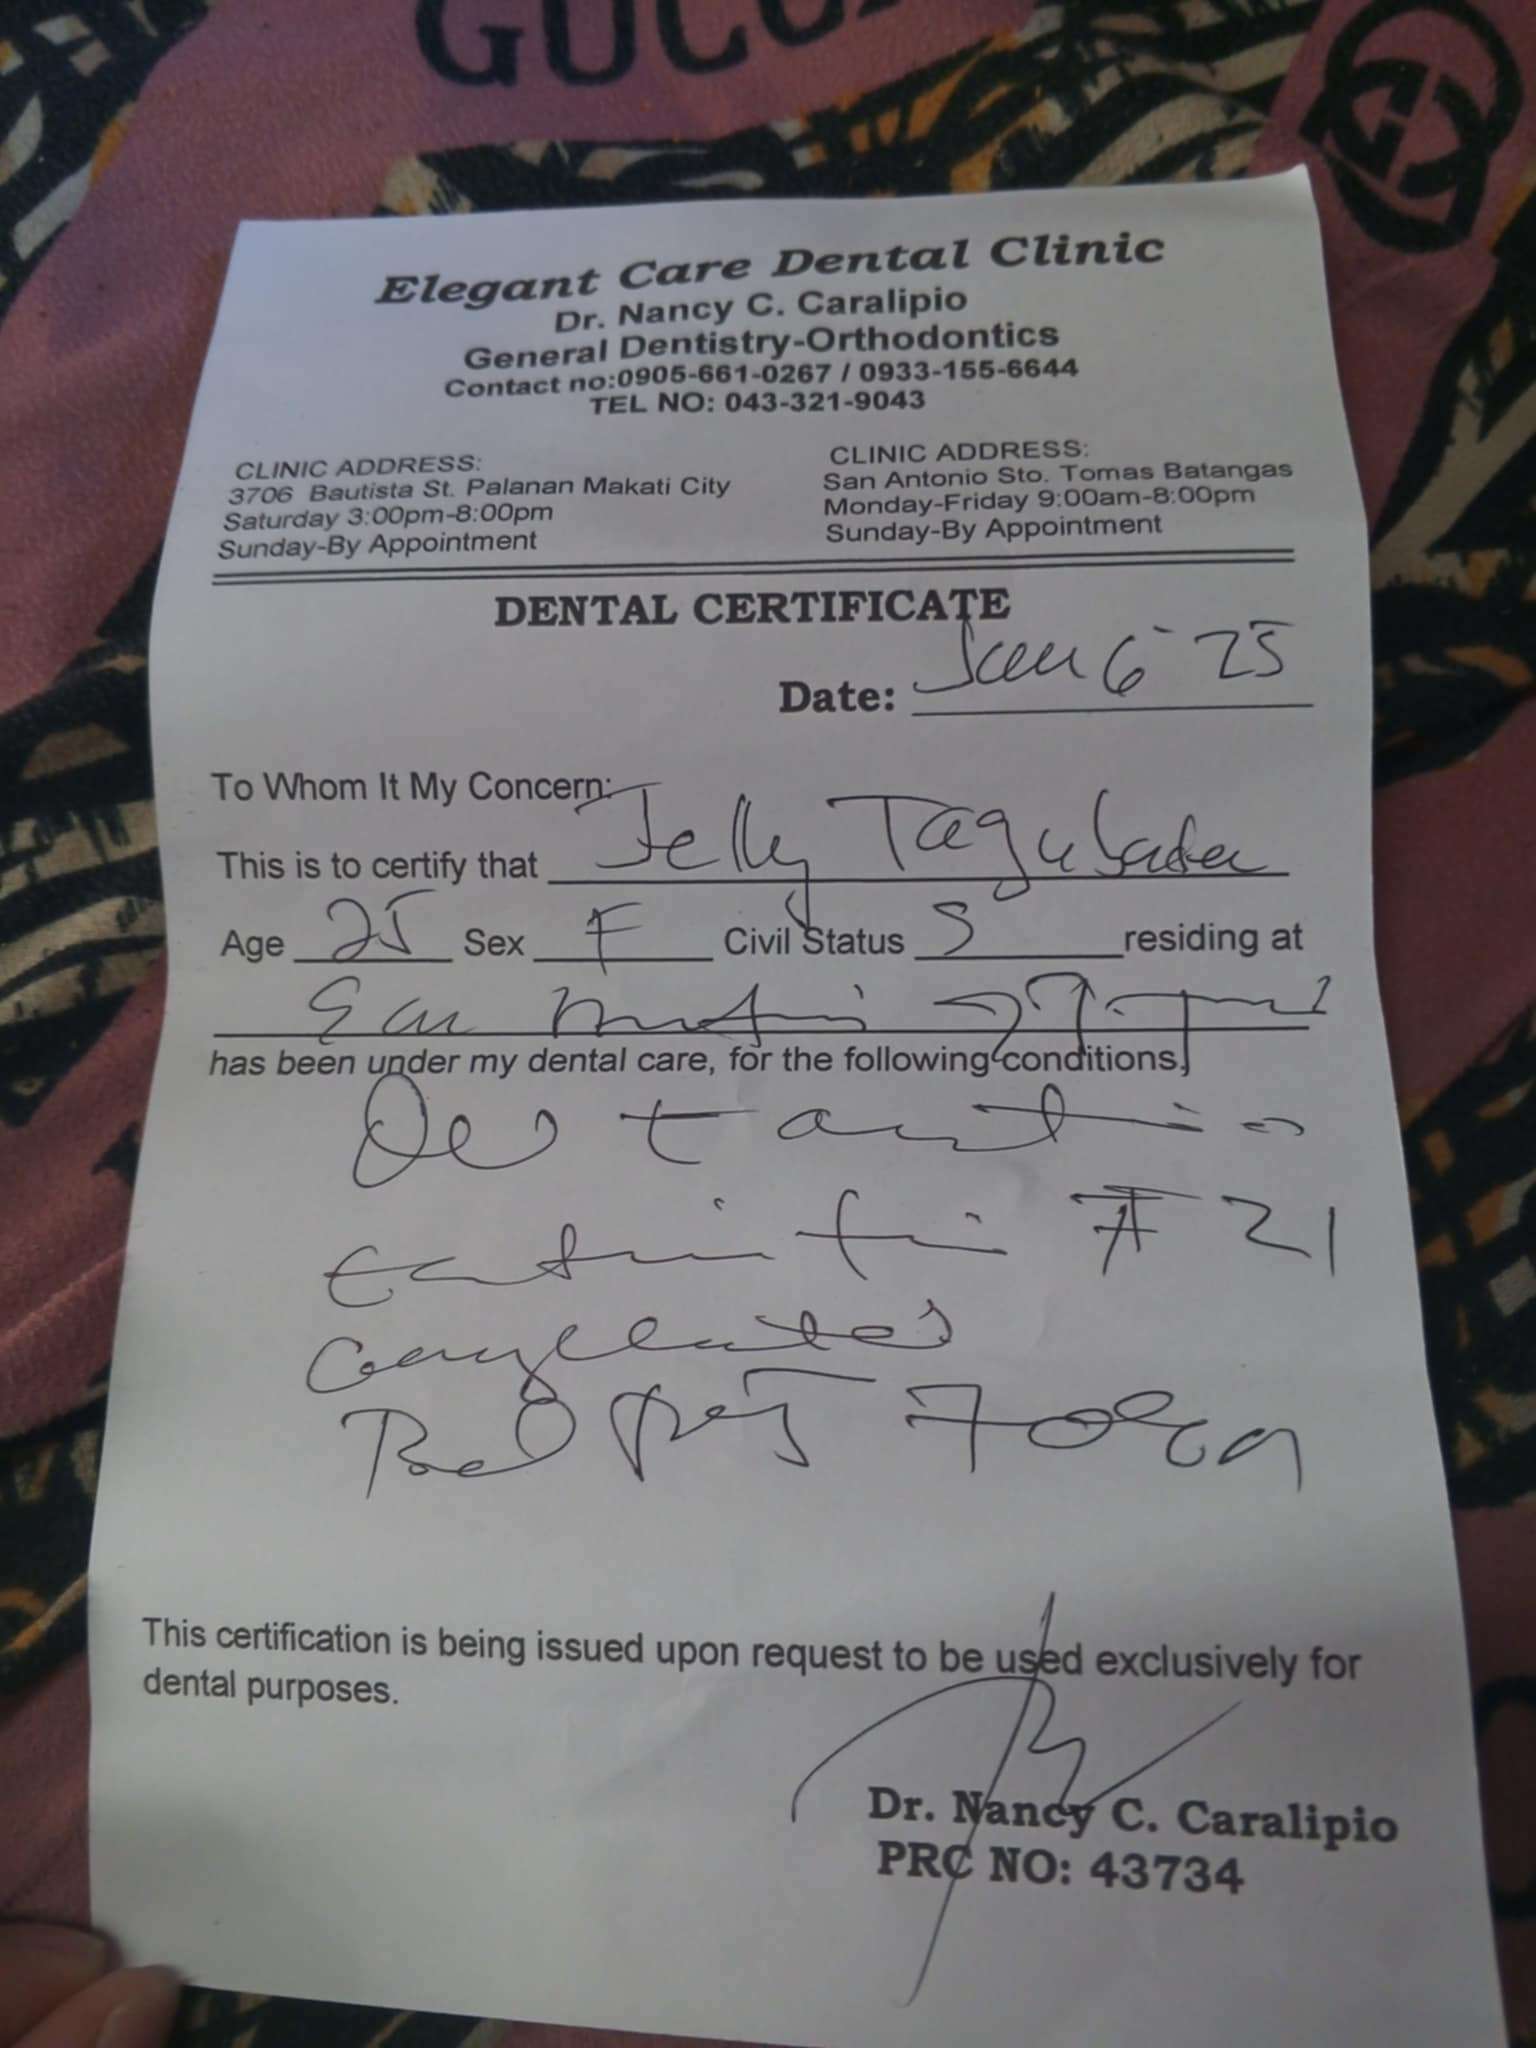 GUCC
Elegant Care Dental Clinic
Dr. Nancy C. Caralipio
General Dentistry-Orthodontics
Contact no:0905-661-0267 / 0933-155-6644
TEL NO: 043-321-9043
CLINIC ADDRESS:
3706 Bautista St. Palanan Makati City
Saturday 3:00pm-8:00pm
Sunday-By Appointment
CLINIC ADDRESS:
San Antonio Sto. Tomas Batangas
Monday-Friday 9:00am-8:00pm
Sunday-By Appointment
DENTAL CERTIFICATE
Date: Jan 6 25
To Whom It My Concern:
This is to certify that Jelly
Age 25 Sex F Civil Status S residing at
San
has been under my dental care, for the following conditions,
# 21
Bed Rest
This certification is being issued upon request to be used exclusively for
dental purposes.
Dr. Nancy C. Caralipio
PRC NO: 43734